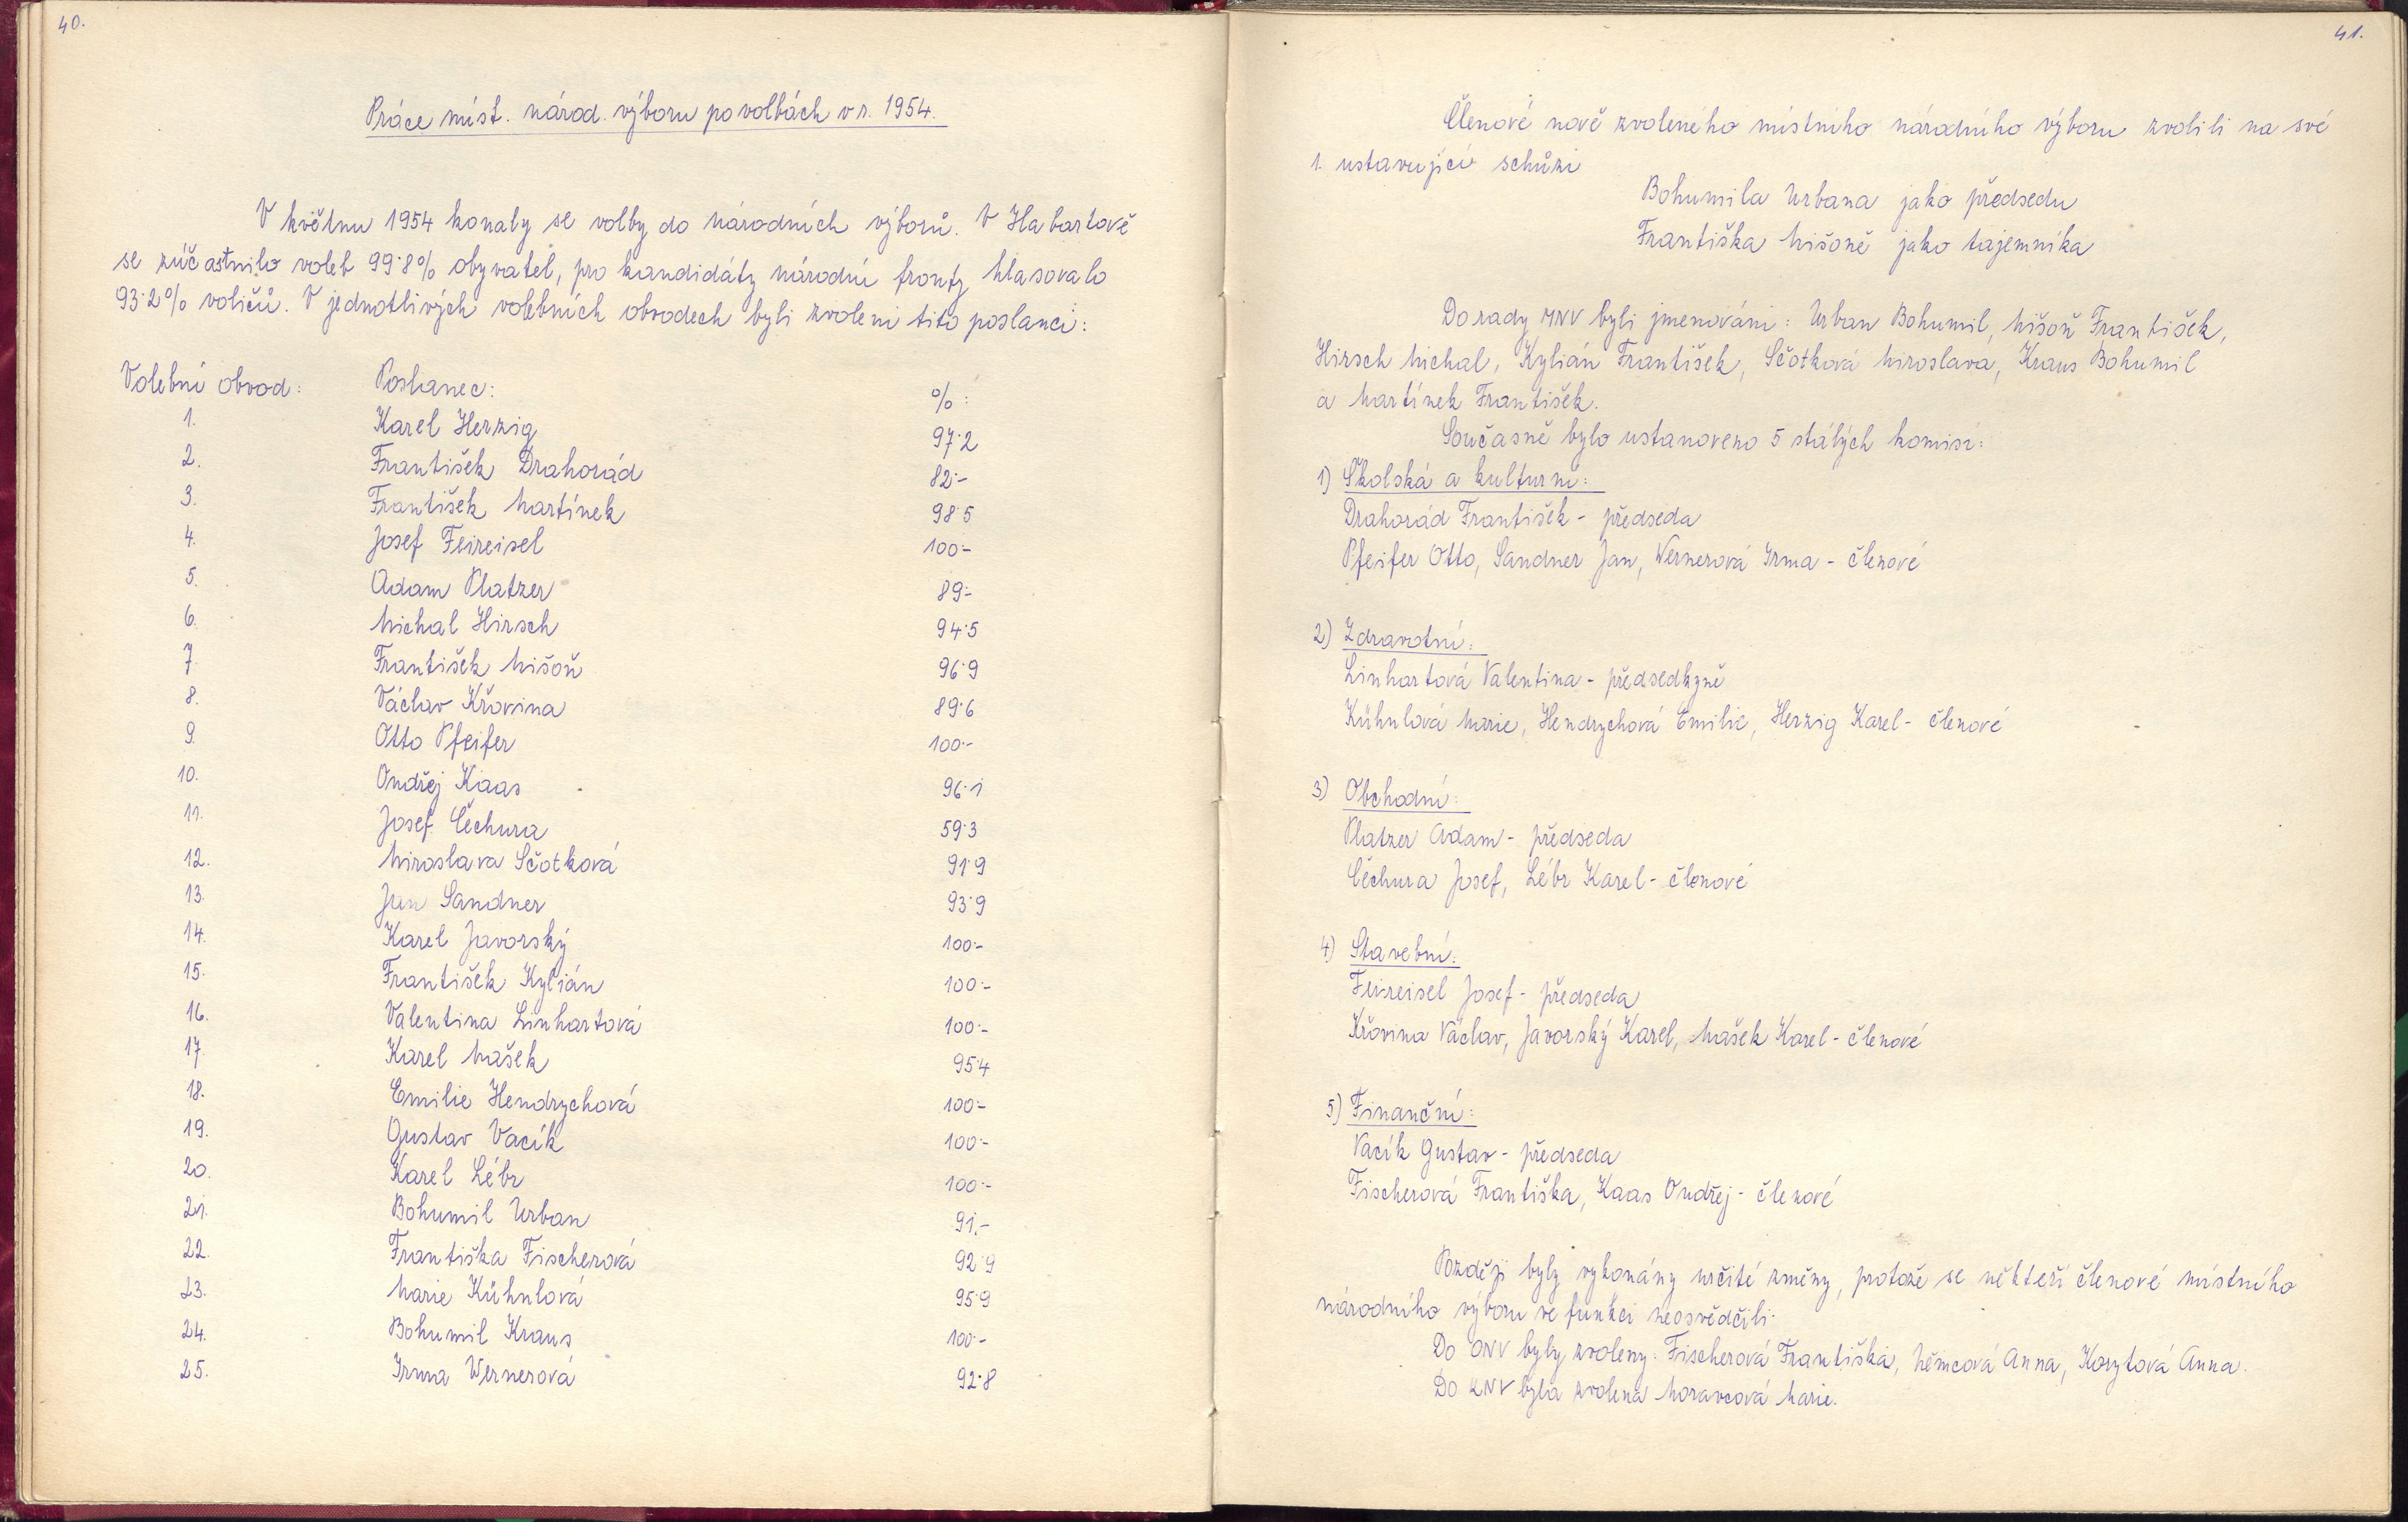 40.
Práce míst. národ. výboru po volbách v r. 1954.
V květnu 1954 konaly se volby do národních výborů. V Habartově
se zúčastnilo voleb 99·8% obyvatel, pro kandidáty národní fronty hlasovalo
93·2% voličů. V jednotlivých volebních obvodech byli zvoleni tito poslanci:
Volební obvod: Poslanec: %:
1. Karel Herzig 97·2
2. František Drahorád 82·-
3. František Martínek 98·5
4. Josef Feireisel 100·-
5. Adam Platzer 89·-
6. Michal Hirsch 94·5
7. František Mišoň 96·9
8. Václav Křovina 89·6
9. Otto Pfeifer 100·-
10. Ondřej Kaas 96·1
11. Josef Čechura 59·3
12. Miroslava Sčotková 91·9
13. Jan Sandner 93·9
14. Karel Javorský 100·-
15. František Kylián 100·-
16. Valentina Linhartová 100·-
17. Karel Mašek 95·4
18. Emilie Hendrychová 100·-
19. Gustav Vacík 100·-
20. Karel Lébr 100·-
21. Bohumil Urban 91.-
22. Františka Fischerová 92·9
23. Marie Kühnlová 95·9
24. Bohumil Kraus 100·-
25. Irma Wernerová 92·8
41.
Členové nově zvoleného místního národního výboru zvolili na své
1. ustavující schůzi
Bohumila Urbana jako předsedu
Františka Mišoně jako tajemníka
Do rady MNV byli jmenováni: Urban Bohumil, Mišoň František,
Hirsch Michal, Kylián František, Sčotková Miroslava, Kraus Bohumil
a Martínek František.
Současně bylo ustanoveno 5 stálých komisí:
1) Školská a kulturní:
Drahorád František - předseda
Pfeifer Otto, Sandner Jan, Wernerová Irma - členové
2) Zdravotní:
Linhartová Valentina - předsedkyně
Kühnlová Marie, Hendrychová Emilie, Herzig Karel - členové
3) Obchodní:
Platzer Adam - předseda
Čechura Josef, Lébr Karel - členové
4) Stavební:
Feireisel Josef - předseda
Křovina Václav, Javorský Karel, Mašek Karel - členové
5) Finanční:
Vacík Gustav - předseda
Fischerová Františka, Kaas Ondřej - členové
Později byly vykonány určité změny, protože se někteří členové místního
národního výboru ve funkci neosvědčili.
Do ONV byly zvoleny: Fischerová Františka, Němcová Anna, Korytová Anna.
Do KNV byla zvolena Moravcová Marie.